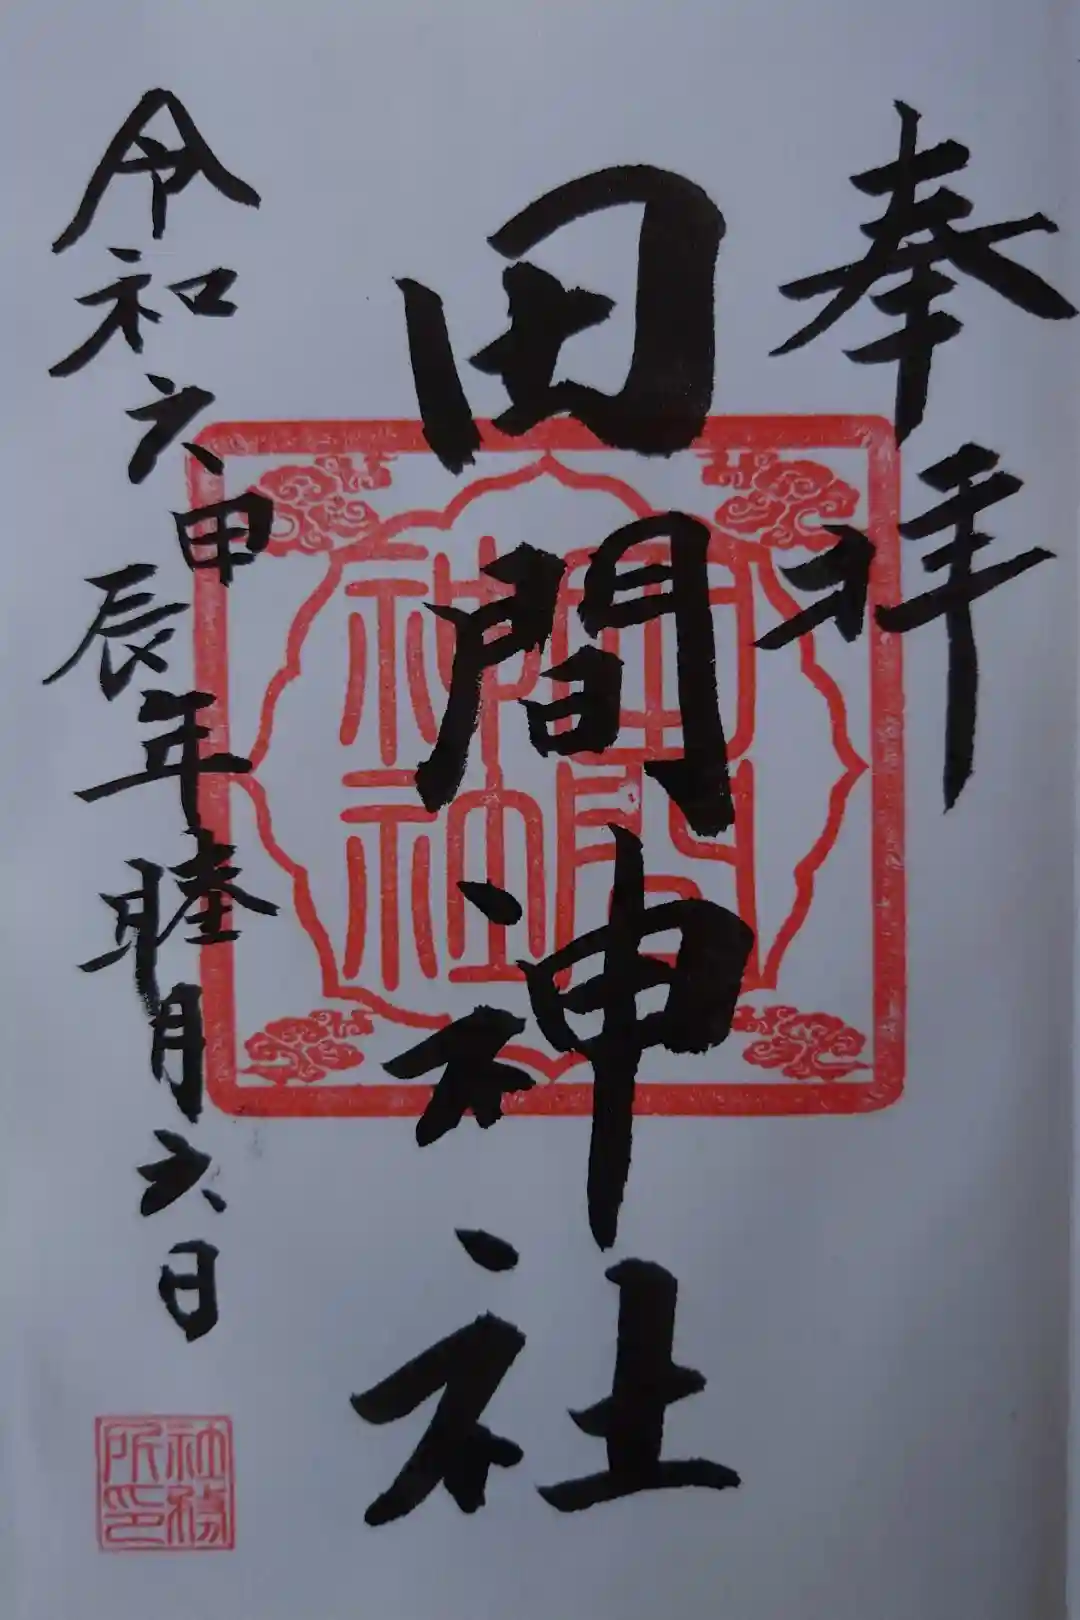 奉拝
田間神社
田間神社
令和六甲辰年睦月六日
社務所印